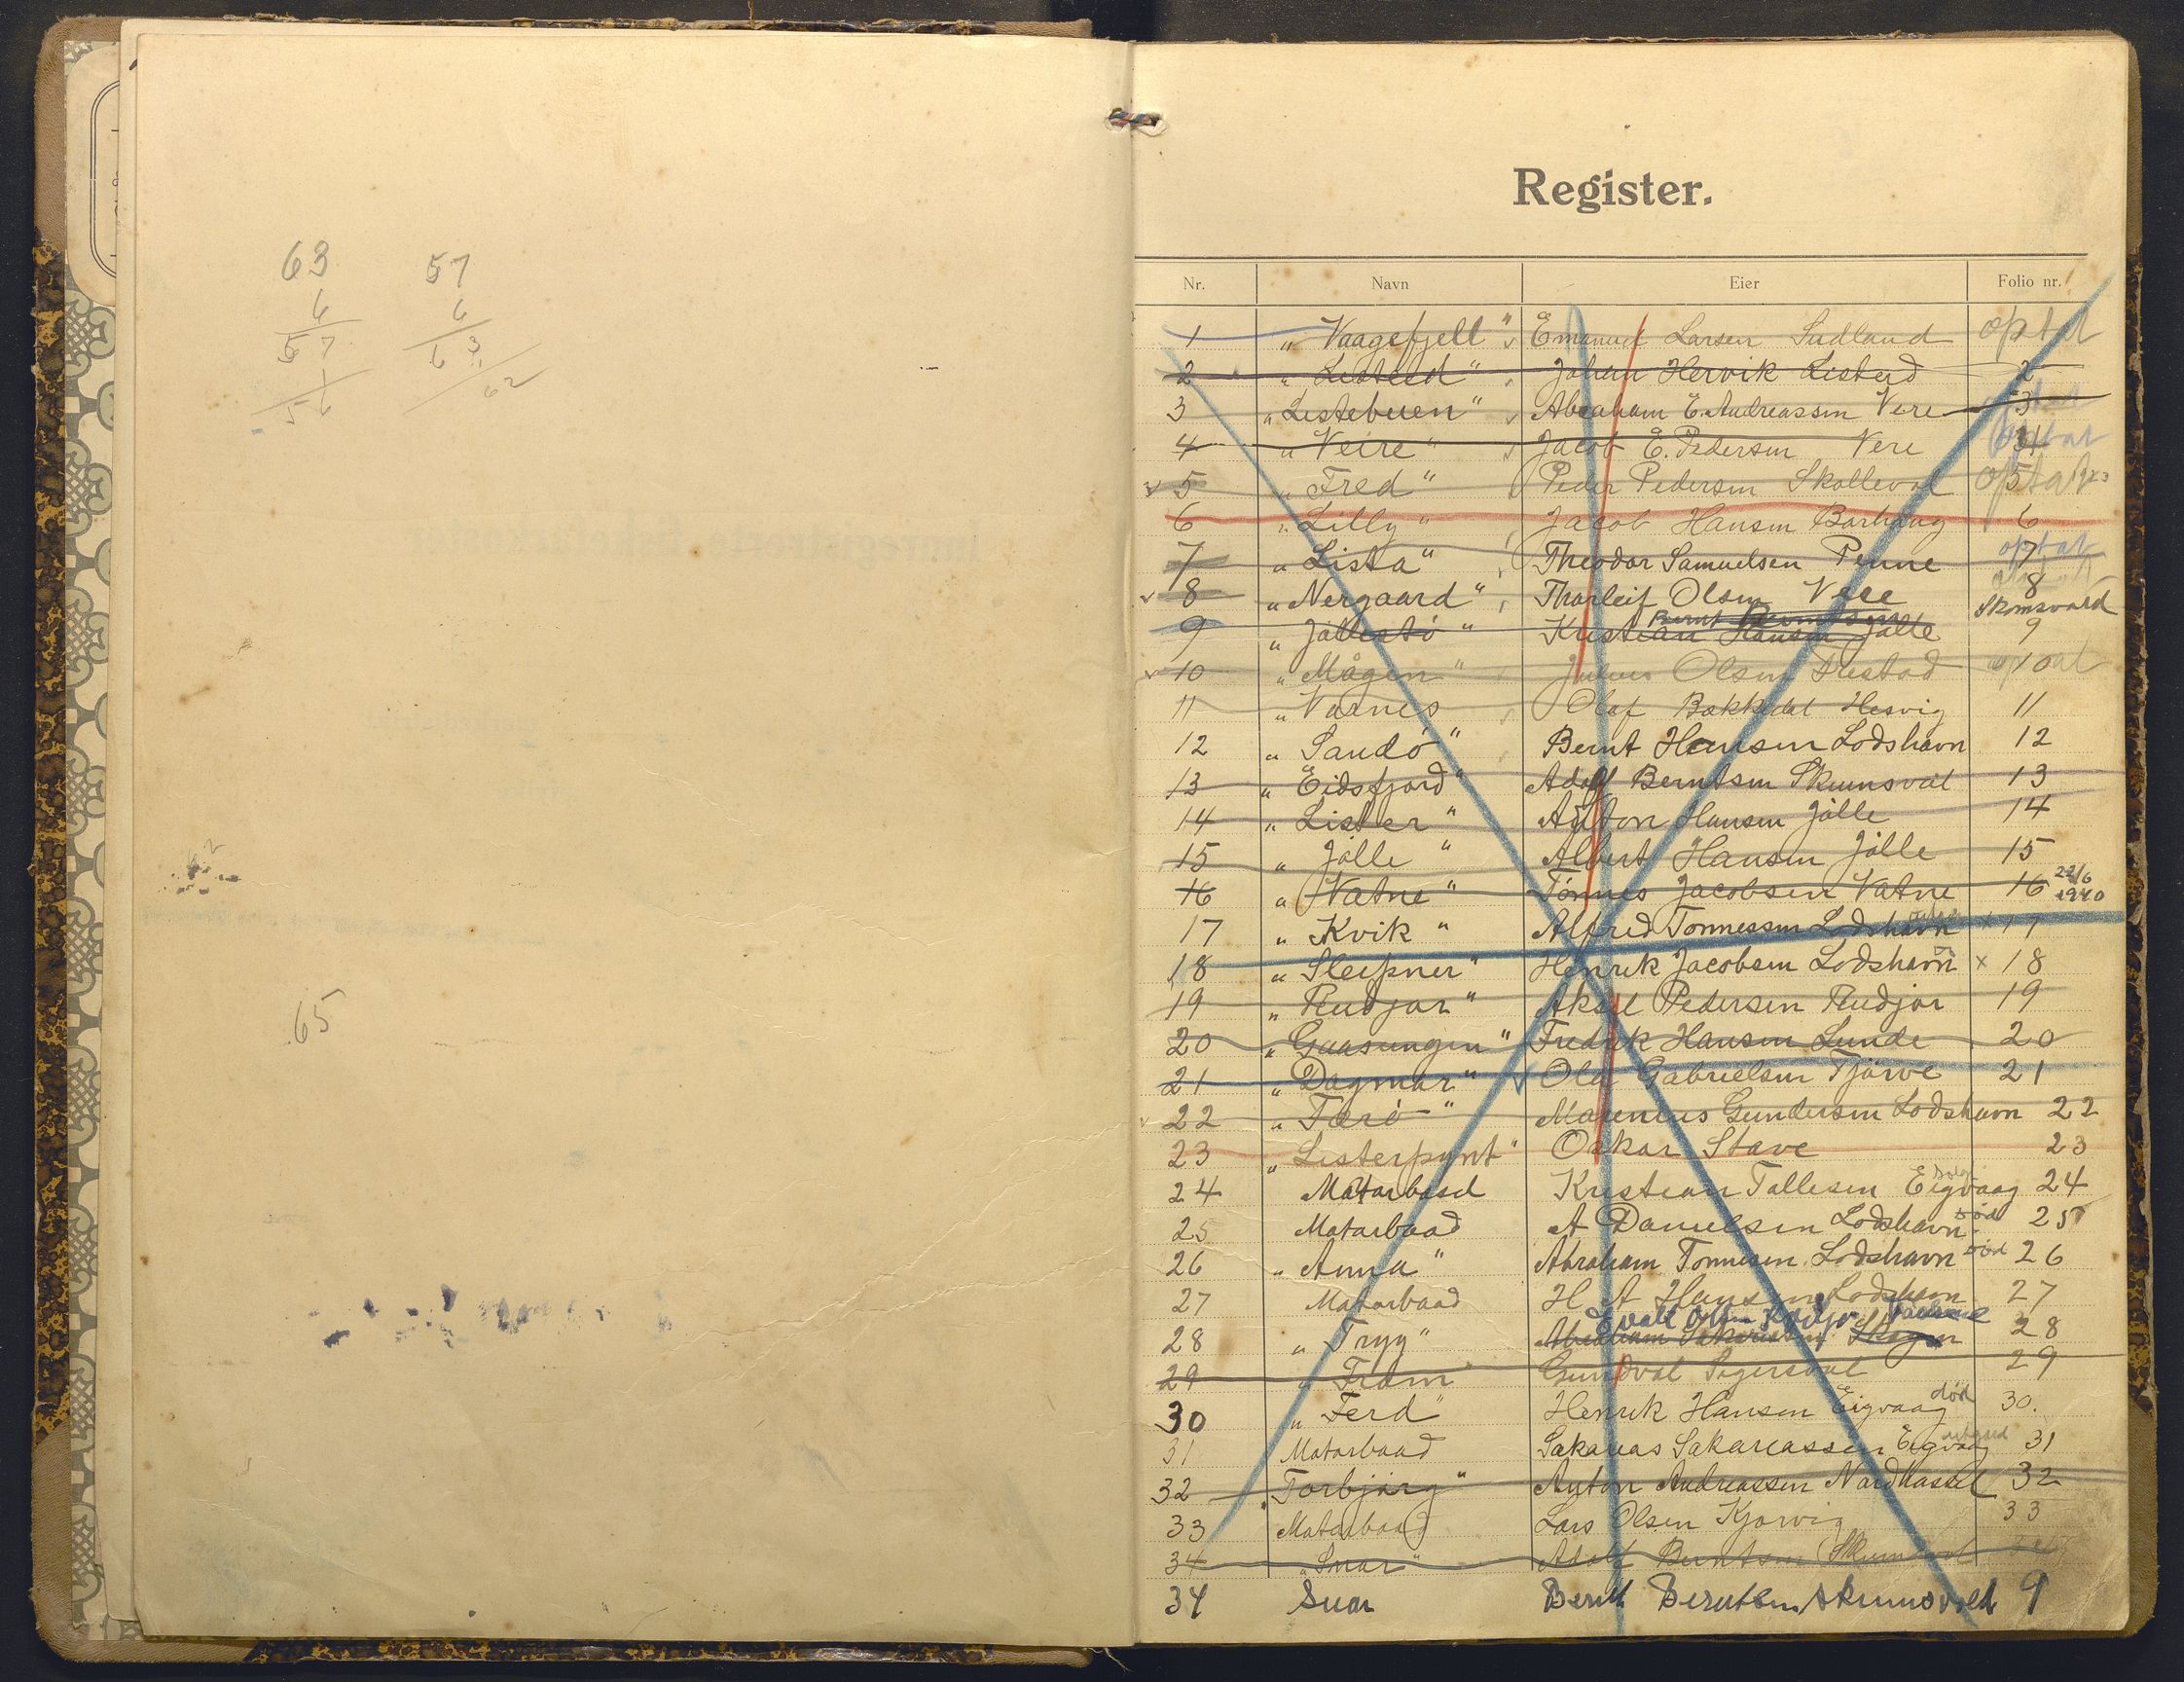 63 57
6 6
57 63
1 62
56
65
Register.
Nr. Navn Eier Folio nr.
1 „Vaagefjell" Emanuel Larsen Sudland optat
2 „Listeid" Johan Hervik Listeid 2
3 „Listebuen" Abraham E. Andreassen Vere 3
4 „Veire" Jacob E. Pedersen Vere
5 „Fred" Peder Pedersen Skollevol 5 optat
6 „Lilly" Jacob Hansen Borhaug 6
7 „Lista" Theodor Samuelsen Penne 7 optat
8 „Nergaard" Thorleif Olsen Vere 8
Bernt Berntsen Skomsvold
9 „Jøllestø" Kristian Hansen Jølle 9
10 „Mågen" Olsen Trestad 10
11 „Varnes Olaf Bakkedal Hesvig 11
12 „Sandø" Bernt Hansen Lodshavn 12
13 „Eidsfjord" Adolf Berntsen Skumsvol 13
14 „Lister" Anton Hansen Jølle 14
15 „Jølle" Albert Hansen Jølle 15
16 „Vatne" Tønnes Jacobsen Vatne 16 22/6 1940
17 „Kvik" Alfred Tønnessen Lodshavn x 17
18 „Sleipner" Henrik Jacobsen Lodshavn x 18
19 „Rudjor" Aksel Pedersen Rudjor 19
20 „Gaasungen" Fredrik Hansen Lunde 20
21 „Dagmar" Ola Gabrielsen Tjørve 21
22 „Terø" Marenius Gundersen Lodshavn 22
23 „Listerpynt" Oskar Stave 23
24 Motorbaad Kristian Tallesen Eigvaag 24
25 Motorbaad A Danielsen Lodshavn død 25
26 „Anna" Abraham Tønnesen Lodshavn død 26
27 Motorbaad H A Hansen Lodshavn 27
Evald Olsen
28 „Tryg" Abraham Skagen 28
29 „Fram" Gundval Sigersvol 29
30 „Ferd" Henrik Hansen Eigvaag død 30.
31 Motorbaad Sakarias Sakariassen Eigvaag 31
32 „Torbjørg" Anton Andreassen Nordhassel 32
33 Motorbaad Lars Olsen Kjørvig 33
34 „Snar" Adolf Berntsen Skumsvol
34 Snar Bernt Berntsen Skumsvold 9